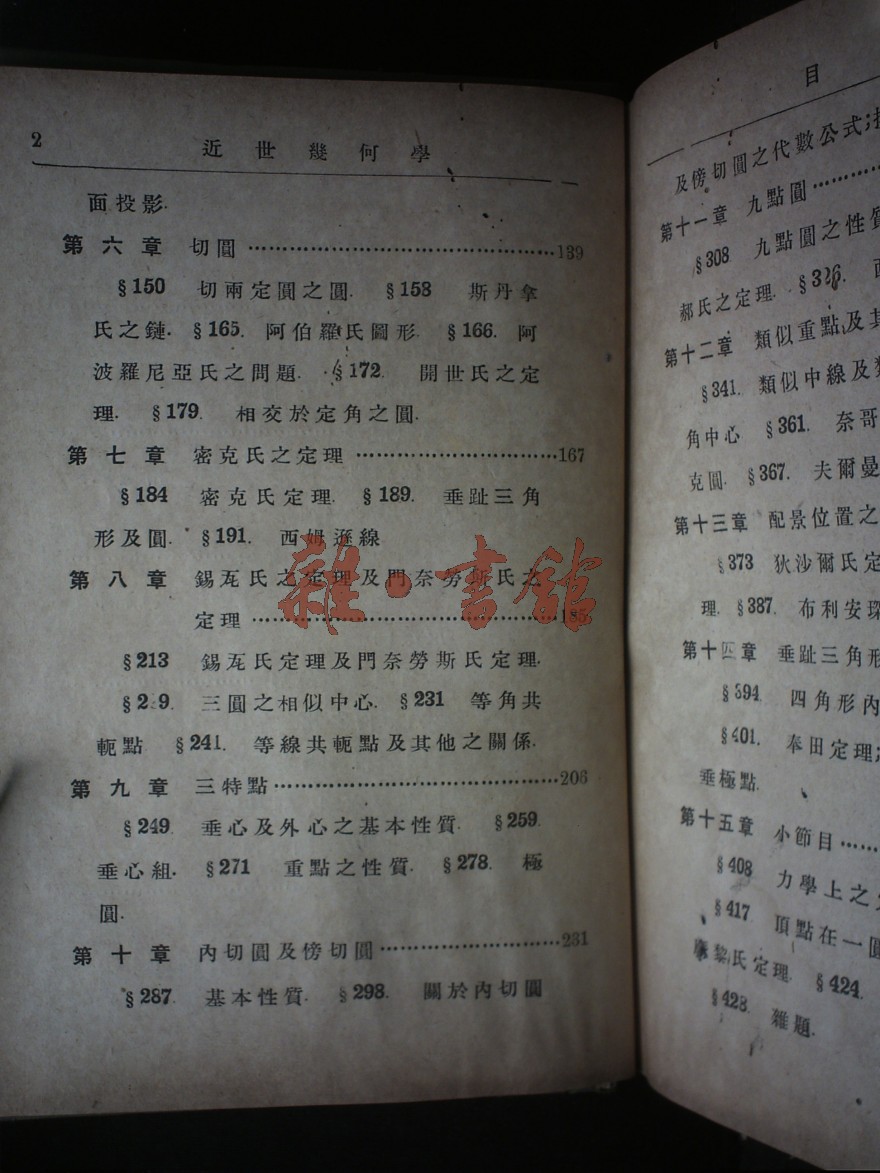 2 近世幾何學
面投影.
第六章 切圓 ………………………………… 139
§150 切兩定圓之圓. §158 斯丹拿
氏之鏈. §165. 阿伯羅氏圖形. §166. 阿
波羅尼亞氏之問題. §172. 開世氏之定
理. §179. 相交於定角之圓.
第七章 密克氏之定理 …………………………167
§184 密克氏定理. §189. 垂趾三角
形及圓. §191. 西姆遜線
第八章 錫瓦氏之定理及門奈勞斯氏之
定理 ………………………………… 185
§213 錫瓦氏定理及門奈勞斯氏定理.
§2 9. 三圓之相似中心. §231 等角共
軛點 §241. 等線共軛點及其他之關係.
第九章 三特點 ………………………………… 206
§249. 垂心及外心之基本性質. §259.
垂心組. §271 重點之性質. §278. 極
圓.
第十章 內切圓及傍切圓 ……………………… 231
§287. 基本性質. §298. 關於內切圓
雜·書館
目
及傍切圓之代數公式;
第十一章 九點圓 …………
§308. 九點圓之性質
郝氏之定理. §326.
第十二章 類似重點及其
§341. 類似中線及類
角中心 §361. 奈哥
克圓. §367. 夫爾曼
第十三章 配景位置之
§373 狄沙爾氏定
理. §387. 布利安琛
第十四章 垂趾三角形
§394. 四角形內
§401. 奉田定理;
垂極點.
第十五章 小節目 ……
§408 力學上之
§417 頂點在一圓
摩黎氏定理. §424.
§428. 雜題.